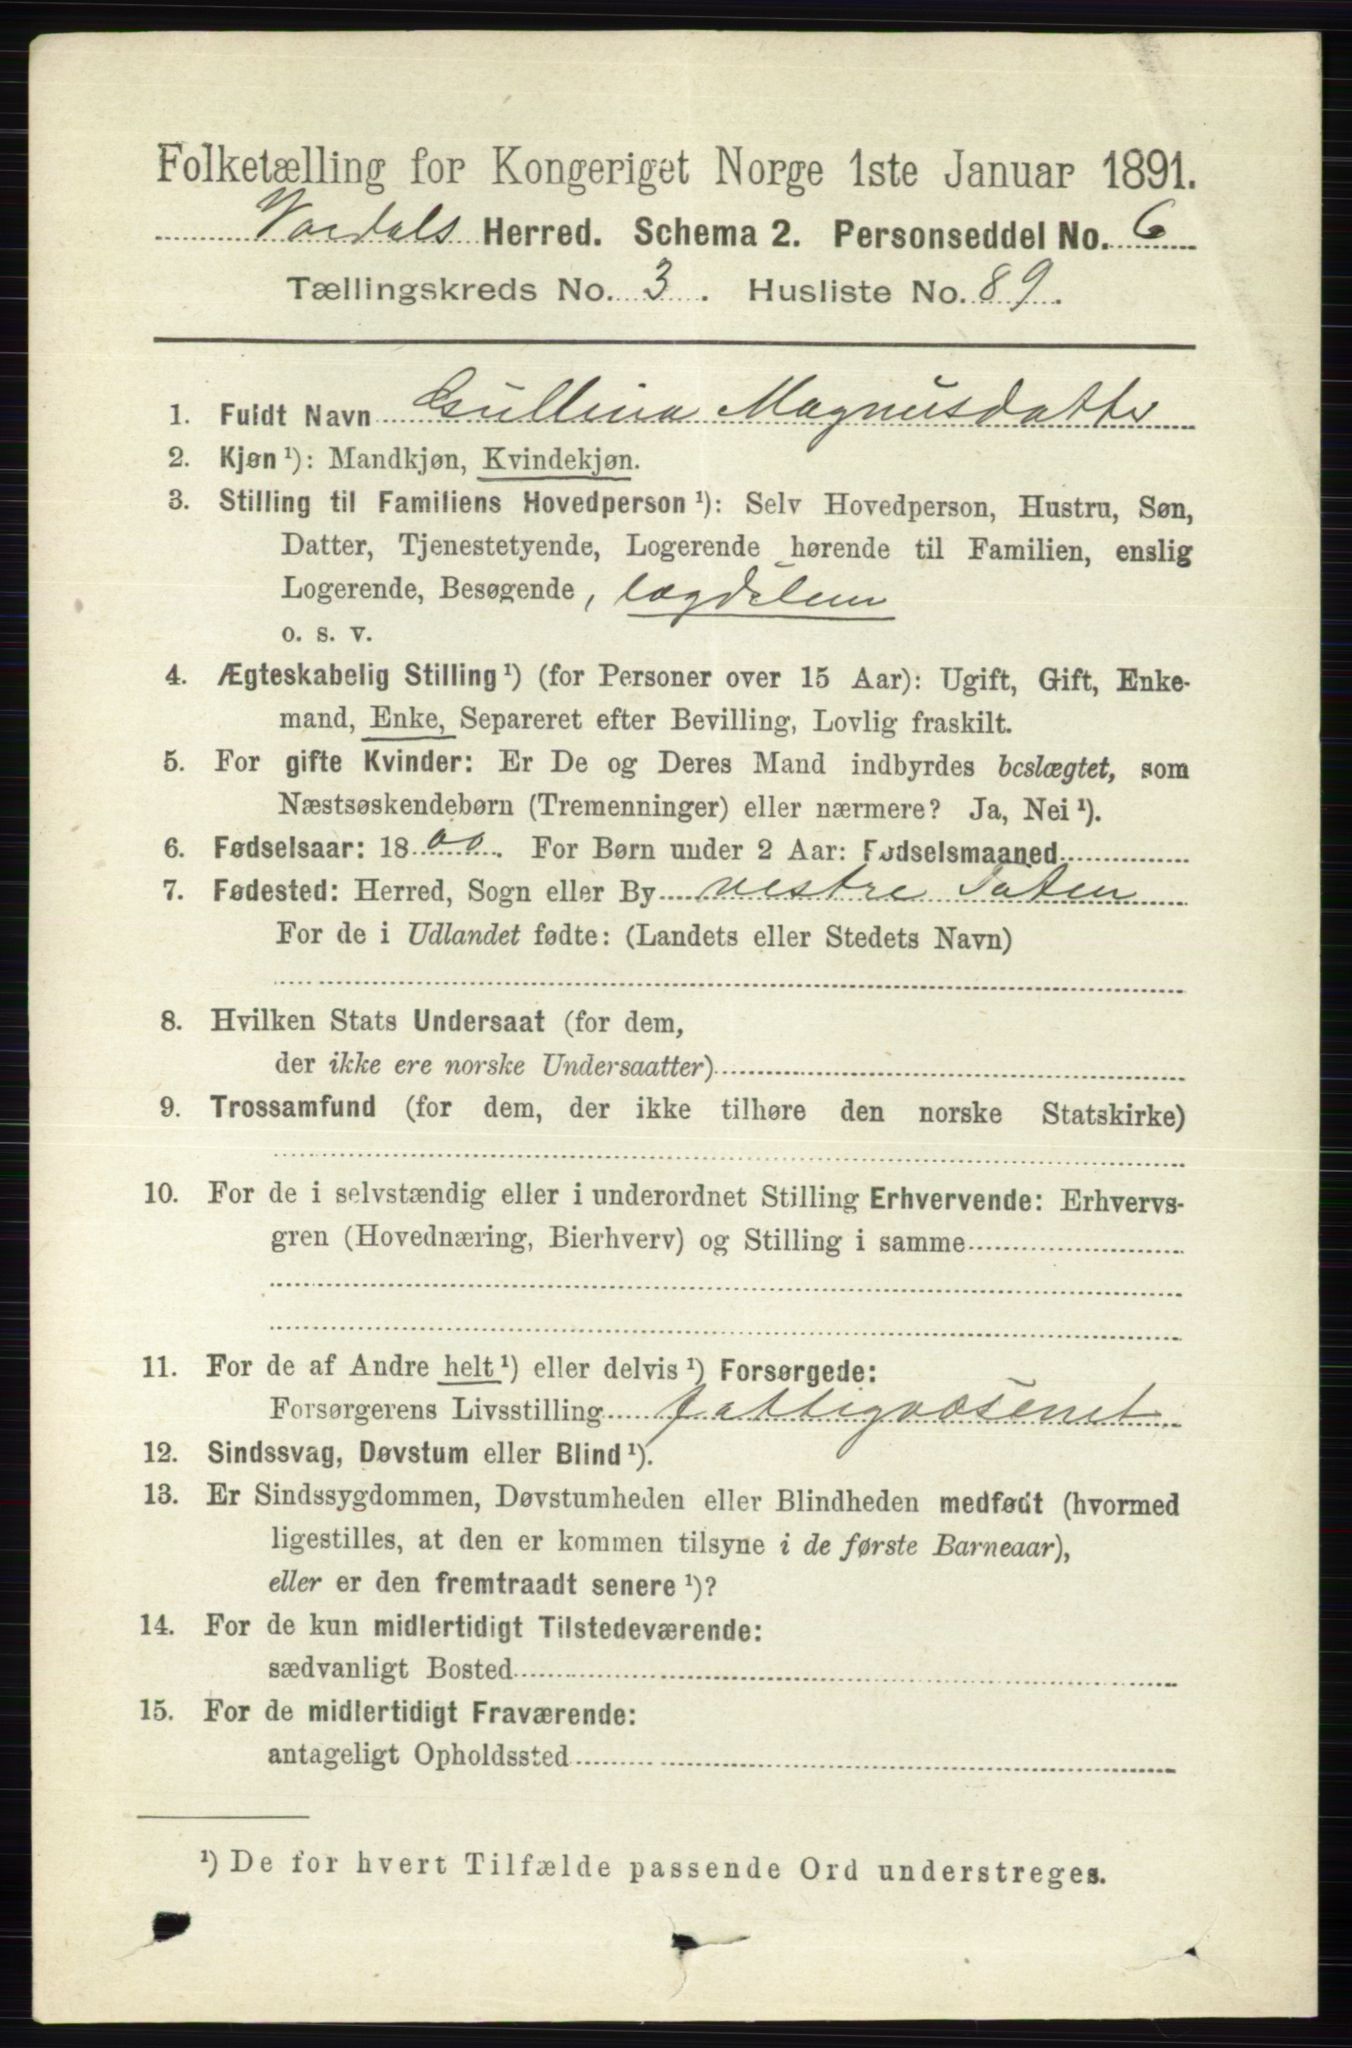 Folketælling for Kongeriget Norge 1ste Januar 1891.
Vardals Herred. Schema 2. Personseddel No. 6
Tællingskreds No. 3. Husliste No. 89.
1. Fuldt Navn Gullina Magnusdatter
2. Kjøn ¹): Mandkjøn, Kvindekjøn.
3. Stilling til Familiens Hovedperson ¹): Selv Hovedperson, Hustru, Søn,
Datter, Tjenestetyende, Logerende hørende til Familien, enslig
Logerende, Besøgende, lægdslem
o. s. v.
4. Ægteskabelig Stilling ¹) (for Personer over 15 Aar): Ugift, Gift, Enke-
mand, Enke, Separeret efter Bevilling, Lovlig fraskilt.
5. For gifte Kvinder: Er De og Deres Mand indbyrdes beslægtet, som
Næstsøskendebørn (Tremenninger) eller nærmere? Ja, Nei ¹).
6. Fødselsaar: 1800. For Børn under 2 Aar: Fødselsmaaned
7. Fødested: Herred, Sogn eller By vestre Toten
For de i Udlandet fødte: (Landets eller Stedets Navn)
8. Hvilken Stats Undersaat (for dem,
der ikke ere norske Undersaatter)
9. Trossamfund (for dem, der ikke tilhøre den norske Statskirke)
10. For de i selvstændig eller i underordnet Stilling Erhvervende: Erhvervs-
gren (Hovednæring, Bierhverv) og Stilling i samme
11. For de af Andre helt ¹) eller delvis ¹) Forsørgede:
Forsørgerens Livsstilling fattigvæsenet
12. Sindssvag, Døvstum eller Blind ¹).
13. Er Sindssygdommen, Døvstumheden eller Blindheden medfødt (hvormed
ligestilles, at den er kommen tilsyne i de første Barneaar),
eller er den fremtraadt senere ¹)?
14. For de kun midlertidigt Tilstedeværende:
sædvanligt Bosted
15. For de midlertidigt Fraværende:
antageligt Opholdssted
¹) De for hvert Tilfælde passende Ord understreges.